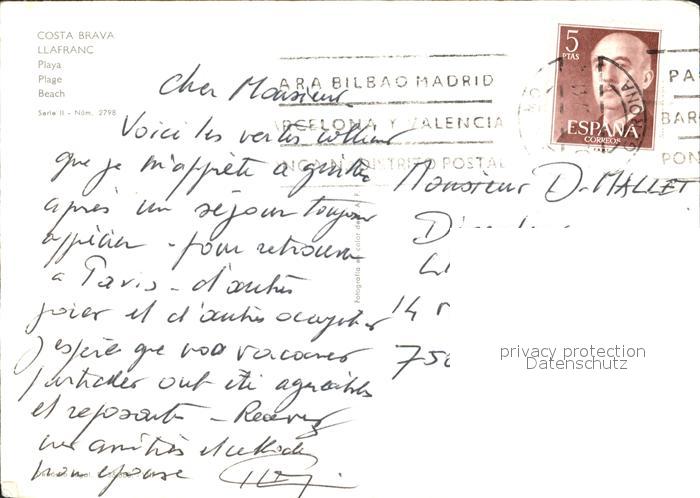 COSTA BRAVA
LLAFRANC
Playa
Plage
Beach
Serie II - Núm. 2798
5
PTAS
ESPAÑA
CORREOS
ARA BILBAO MADRID
ARCELONA Y VALENCIA
DISTRITO POSTAL
PA
BAR
PON
Cher Monsieur
Voici les vertes collines
que je m'apprête à quitter
après un séjour toujours
apprécié - pour retrouver
à Paris - d'autres
joies et d'autres occupations
J'espère que vos vacances
ont été agréables
et reposantes - Recevez
mes amitiés et
mon épouse
Monsieur D. MALLET
14
750
Fotografía en color
privacy protection
Datenschutz